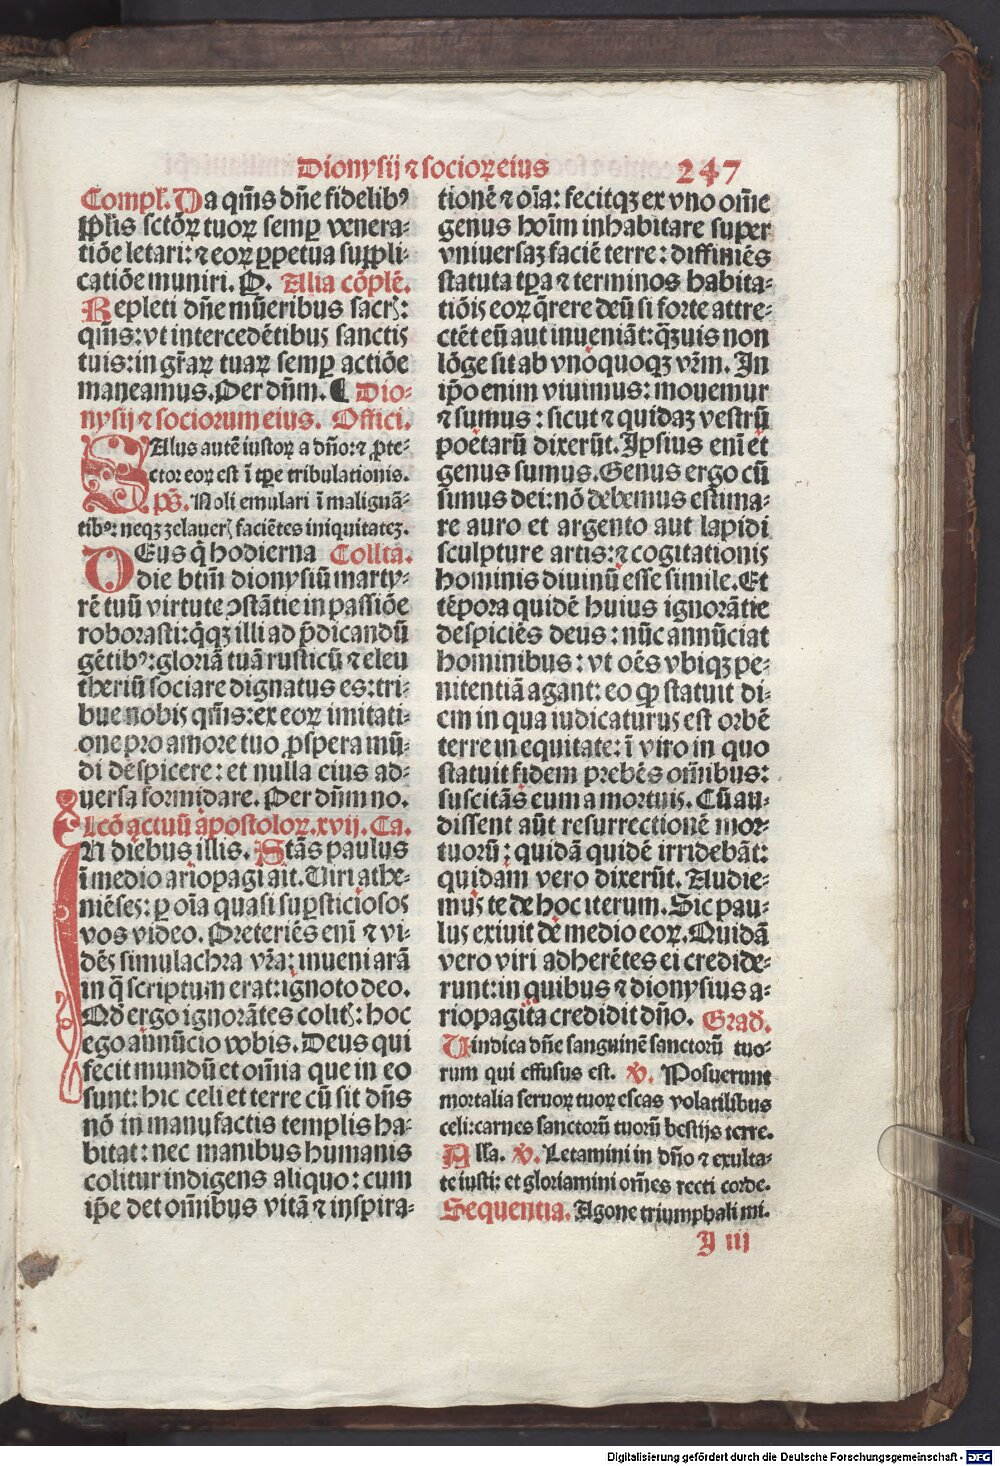 Dionysij ⁊ socioꝝ eius 247
Compl'. Da qm̄s dn̄e fidelibꝰ
pp̄lis sctōꝝ tuoꝝ semꝑ venera-
tiōe letari: ⁊ eoꝝ ꝑpetua suppli-
catiōe muniri. P. Alia cōplē.
Repleti dn̄e mūeribus sacrꝭ:
qm̄s: vt intercedētibus sanctis
tuis: in gr̄aꝝ tuaꝝ semꝑ actiōe
maneamus. Per dn̄m. ¶ Dio-
nysij ⁊ sociorum eius. Offici.
SAlus autē iustoꝝ a dn̄o: ⁊ ꝓte-
ctor eoꝝ est ī tꝑe tribulationis.
ps̄. Noli emulari ī malignā-
tibꝰ: neqꝫ zelauerꝭ faciētes iniquitateꝫ.
DEus q̄ hodierna Collta.
die btm̄ dionysiū marty-
rē tuū virtute ꝯstātie in passiōe
roborasti: q̄qꝫ illi ad p̄dicandū
gētibꝰ: gloriā tuā rusticū ⁊ eleu
theriū sociare dignatus es: tri-
bue nobis qm̄s: ex eoꝝ imitati-
one pro amore tuo ꝓspera mū-
di despicere: et nulla eius ad-
uersa formidare. Per dn̄m no.
Lcō actuū apostoloꝝ. xvij. Ca.
IN diebus illis. Stās paulus
ī medio ariopagi ait. Viri athe-
niēses: ꝑ oīa quasi suꝑsticiosos
vos video. Preteriēs enī ⁊ vi-
dēs simulachra vr̄a: inueni arā
in q̄ scriptum erat: ignoto deo.
Qd̄ ergo ignorātes colitꝭ: hoc
ego annūcio vobis. Deus qui
fecit mundū et om̄ia que in eo
sunt: hic celi et terre cū sit dn̄s
nō in manufactis templis ha-
bitat: nec manibus humanis
colitur indigens aliquo: cum
ip̄e det om̄ibus vitā ⁊ inspira-
tionē ⁊ oīa: fecitqꝫ ex vno om̄e
genus hoīm inhabitare super
vniuersaꝫ faciē terre: diffiniēs
statuta tꝑa ⁊ terminos habita-
tiōis eoꝝ q̄rere deū si forte attre-
ctēt eū aut inueniāt: q̄ꝫuis non
lōge sit ab vnoquoqꝫ vr̄m. In
ip̄o enim viuimus: mouemur
⁊ sumus: sicut ⁊ quidaꝫ vestrū
poetarū dixerūt. Ipsius enī et
genus sumus. Genus ergo cū
sumus dei: nō debemus estima-
re auro et argento aut lapidi
sculpture artis: ⁊ cogitationis
hominis diuinū esse simile. Et
tēpora quidē huius ignorātie
despiciēs deus: nūc annūciat
hominibus: vt oēs vbiqꝫ pe-
nitentiā agant: eo ꝙ statuit di-
em in qua iudicaturus est orbē
terre in equitate: ī viro in quo
statuit fidem prebēs om̄ibus:
suscitās eum a mortuis. Cū au-
dissent aūt resurrectionē mor-
tuorū: quidā quidē irridebāt:
quidam vero dixerūt. Audie-
mus te de hoc iterum. Sic pau-
lus exiuit de medio eoꝝ. Quidā
vero viri adherētes ei credide-
runt: in quibus ⁊ dionysius a-
riopagita credidit dn̄o. Grad'.
Vindica dn̄e sanguinē sanctorū tuo-
rum qui effusus est. ℣. Posuerunt
mortalia seruoꝝ tuoꝝ escas volatilibus
celi: carnes sanctorū tuorū bestijs terre.
All'a. ℣. Letamini in dn̄o ⁊ exulta-
te iusti: et gloriamini om̄es recti corde.
Sequentia. Agone triumphali mi.
J iij
Digitalisierung gefördert durch die Deutsche Forschungsgemeinschaft - DFG